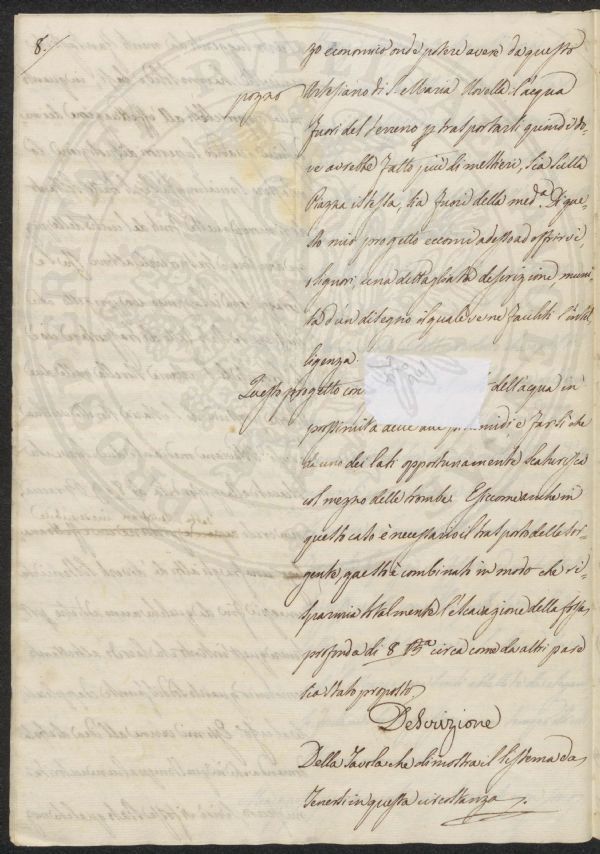 8./
zo economico onde potere avere da questo
pozzo
Artesiano di S. Maria Novella l'acqua
fuori del terreno p trasportarsi quindi do-
ve avrebbe fatto più di mestieri, sia sulla
Piazza istessa, sia fuori della med.a Di que-
sto mio progetto eccomi adesso ad offrirvi,
o Signori, una dettagliata descrizione, muni-
ta d'un disegno il quale ve ne faciliti l'intel-
ligenza.
Questo progetto con dell'acqua in
prossimità delle due piramidi, e far sì che
da uno dei lati opportunamente scaturisca
col mezzo delle trombe. E siccome anche in
questo caso è necessario il trasporto della sor-
gente, questo è combinato in modo che ri-
sparmia totalmente l'escavazione della fossa
profonda di 8 B.a circa come da altri pare
sia stato proposto.
Descrizione
Della Tavola che dimostra il sistema da
tenersi in questa circostanza.